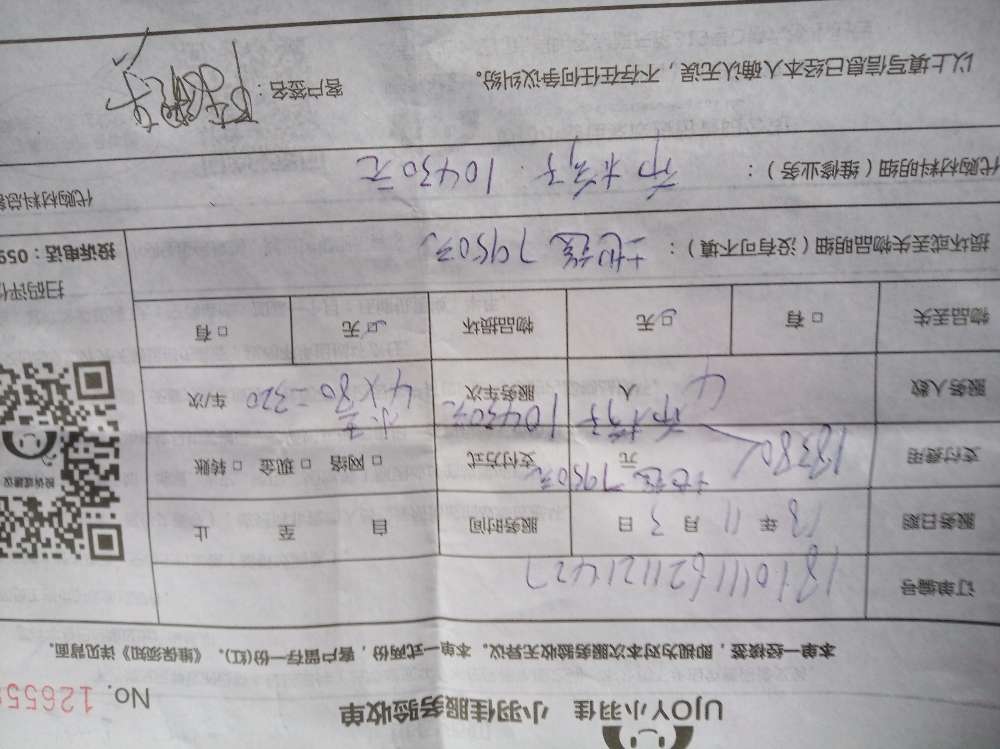 UJOY小羽佳 小羽佳服务验收单
No. 12655
本单一经接签，即视为对本次服务验收无异议。本单一式两份，客户留存一份(红)。《维保须知》详见背面。
订单编号 1810111621121427
服务日期 18 年 11 月 3 日 服务时间 自 至 止
支付费用 18380 元 地毯7950元 支付方式 □网络 □现金 □转账
布椅子 10430元
服务人数 4 人 服务车次 4×80=320 车/次
物品丢失 □有 □无 物品损坏 □无 □有
投诉或建议
扫码评价
损坏或丢失物品明细（没有可不填）： 地毯7950元
投诉电话：059
代购材料明细（维修业务）： 布椅子 10430元
代购材料总额
以上填写信息已经本人确认无误，不存在任何争议纠纷。 客户签名：